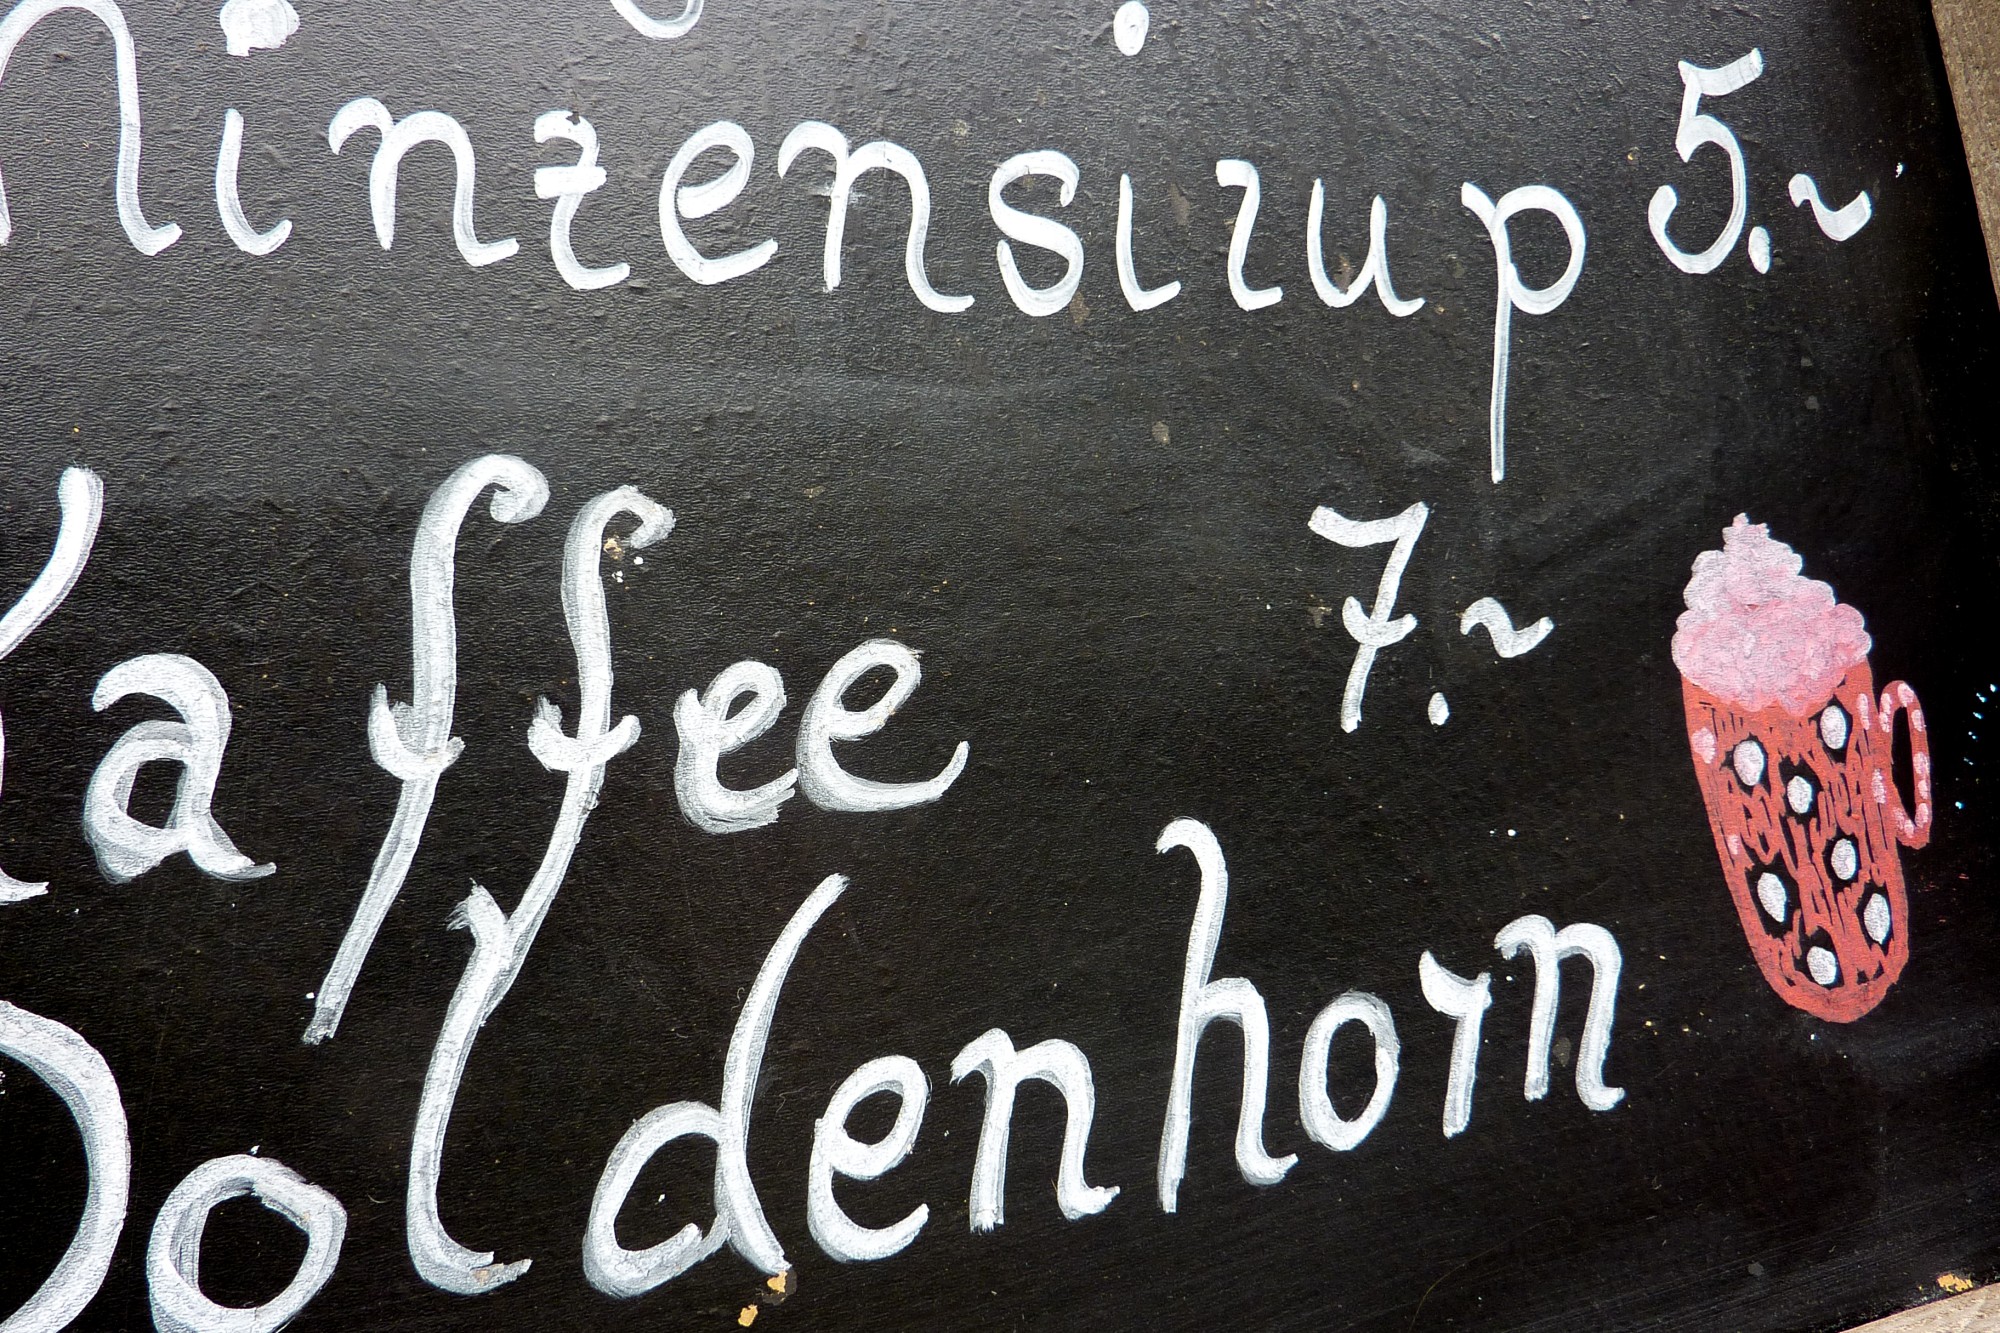 Minzensirup 5.~
Kaffee 7.~
Doldenhorn